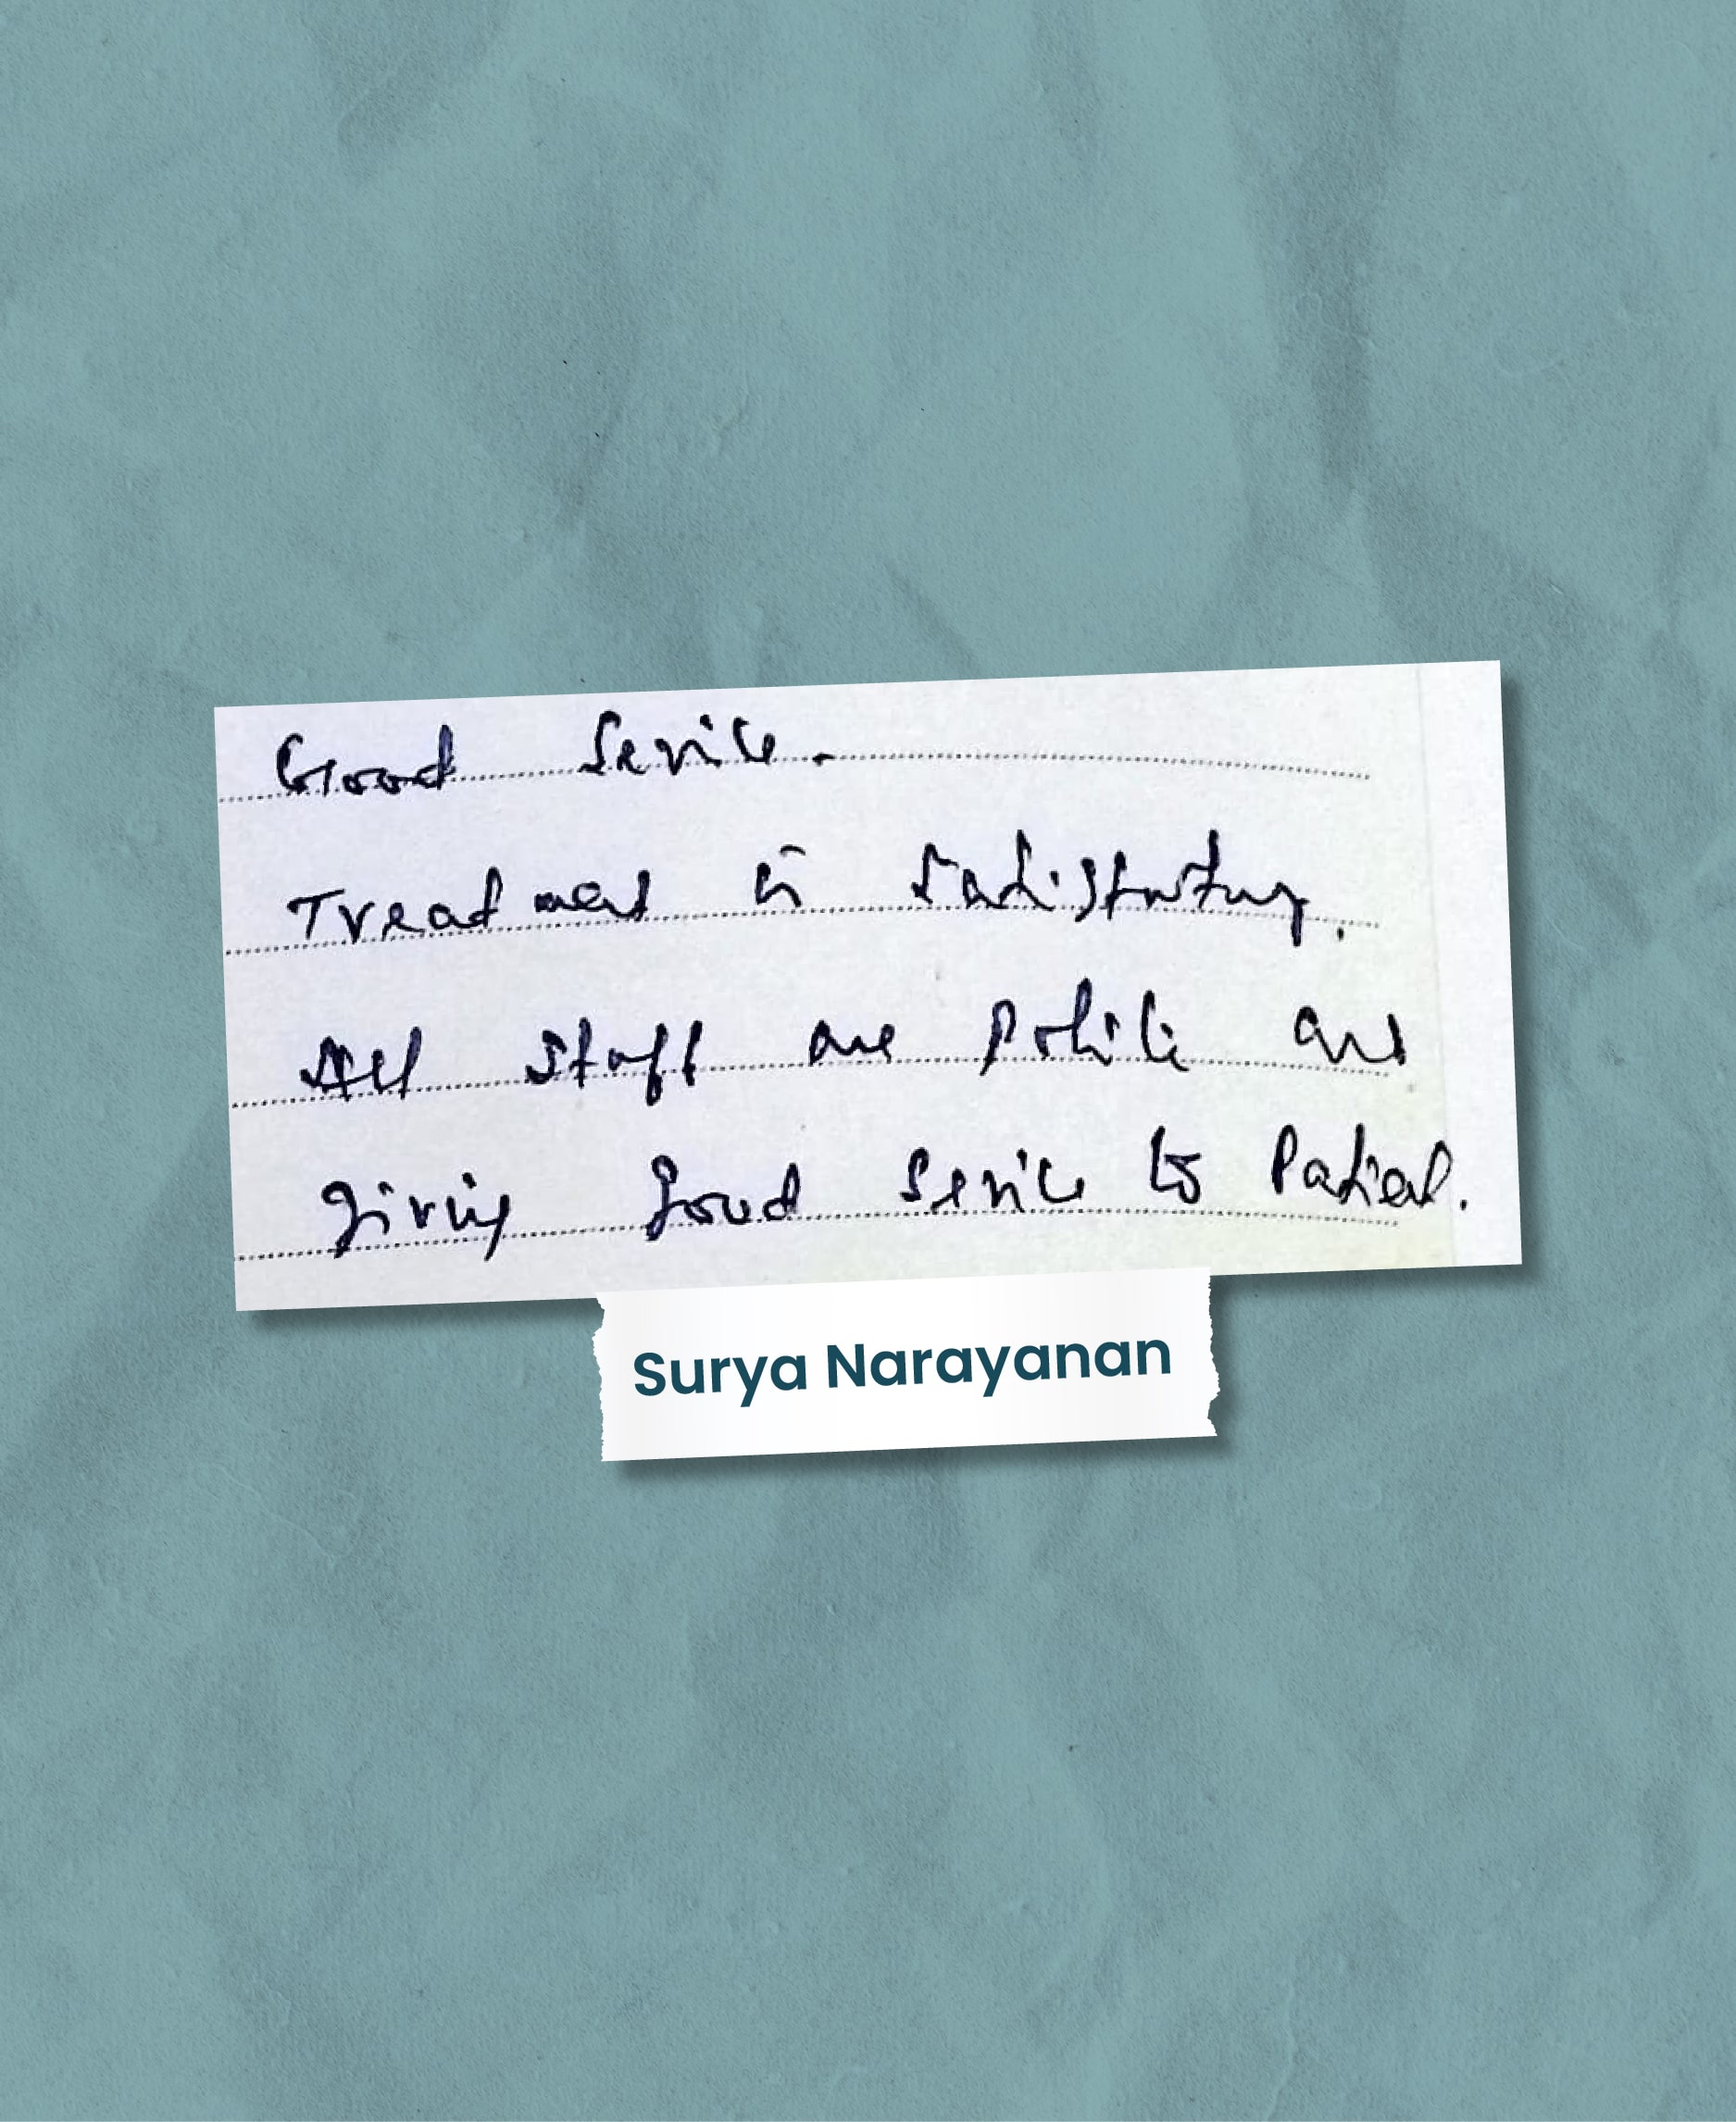 Good Service.
Treatment is satisfactory.
All staff are Polite and
giving good service to Patient.
Surya Narayanan